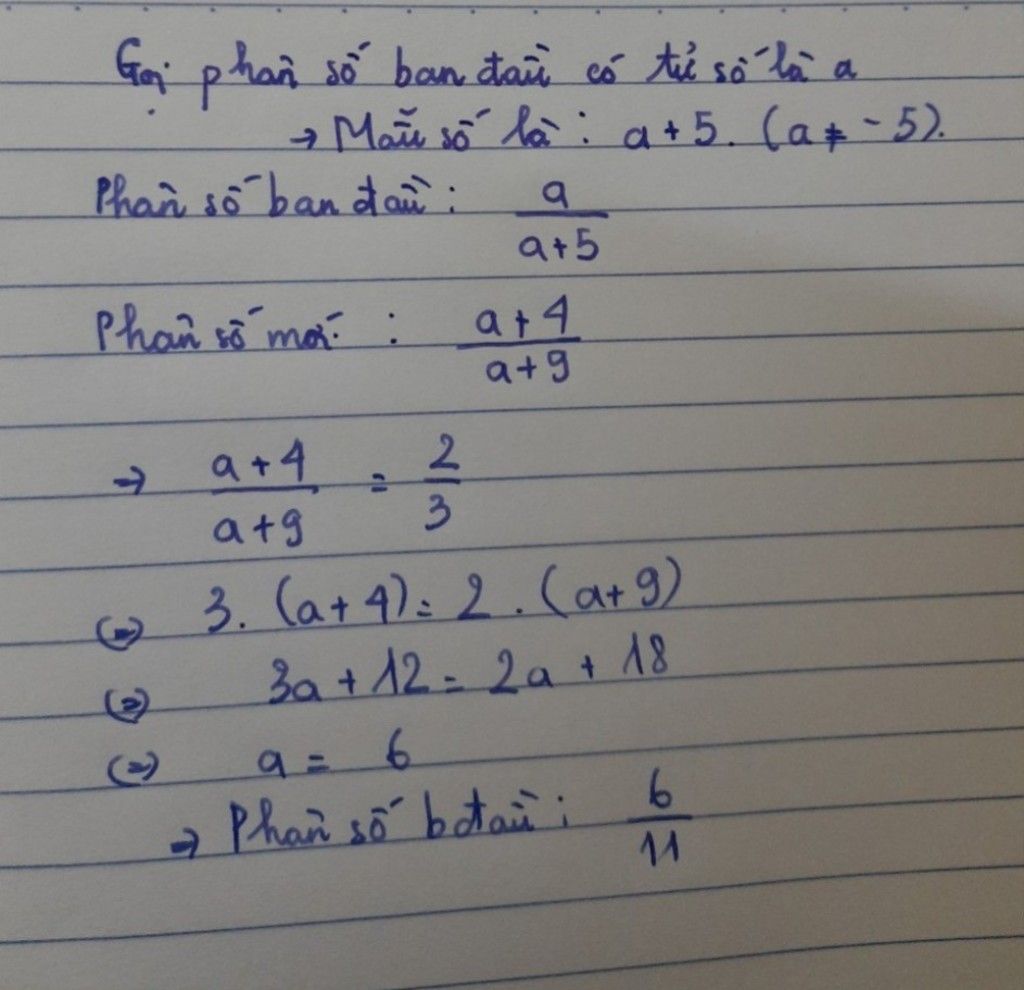 Gọi phân số ban đầu có tử số là a
→ Mẫu số là : a + 5. (a ≠ - 5).
Phân số ban đầu : a/(a+5)
Phân số mới : (a+4)/(a+9)
→ (a+4)/(a+9) = 2/3
(=) 3. (a + 4) = 2 . (a+9)
(=) 3a + 12 = 2a + 18
(=) a = 6
→ Phân số b đầu : 6/11